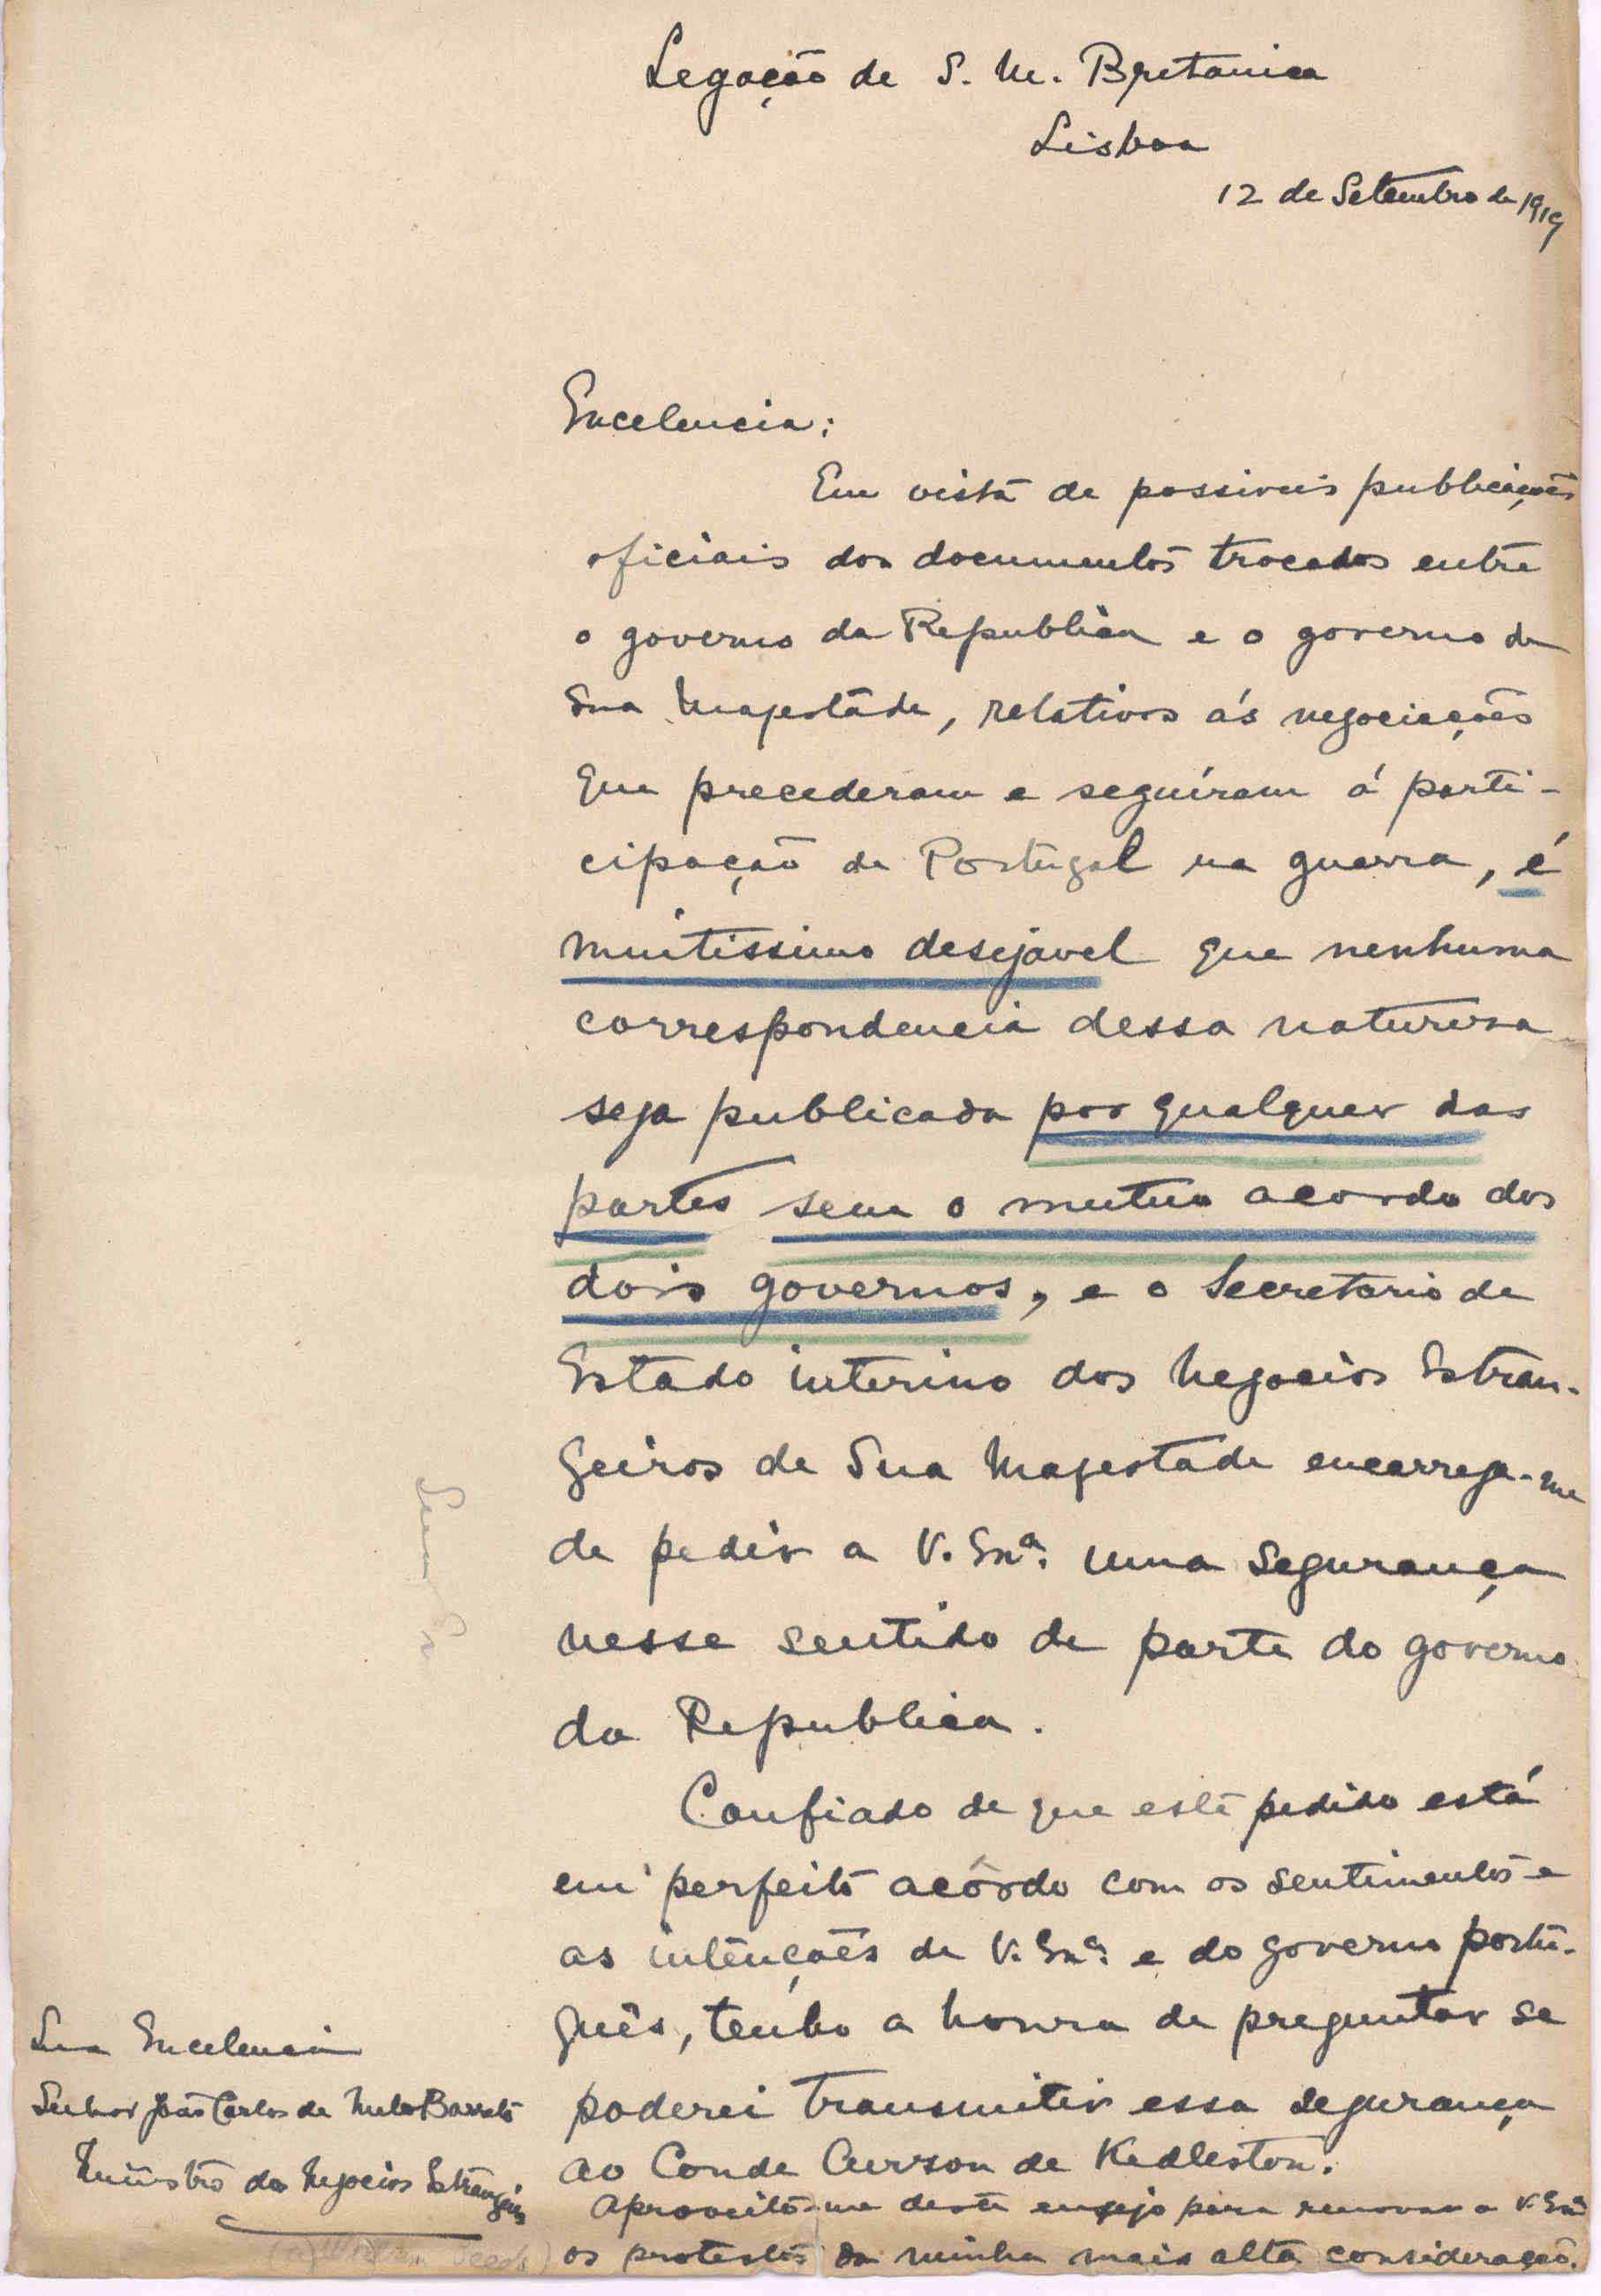 Legação de S. M. Britanica
Lisboa
12 de Setembro de 1919
Excelencia:
Em vista de possiveis publicações
oficiais dos documentos trocados entre
o governo da Republica e o governo de
Sua Magestade, relativos ás negociações
que precederam e seguiram á parti-
cipação de Portugal na guerra, é
muitissimo desejavel que nenhuma
correspondencia dessa natureza
seja publicada por qualquer das
partes sem o mutuo acordo dos
dois governos, e o Secretario de
Estado interino dos Negocios Estran-
geiros de Sua Magestade encarrega-me
de pedir a V. Exª. uma segurança
nesse sentido de parte do governo
da Republica.
Confiado de que este pedido está
em perfeito acôrdo com os sentimentos e
as intenções de V. Exª. e do governo portu-
guês, tenho a honra de preguntar se
poderei transmitir essa segurança
ao Conde Curzon de Kedleston.
Aproveito-me deste ensejo para renovar a V. Exª
os protestos da minha mais alta consideração.
Sua Excelencia
Senhor João Carlos de Melo Barreto
Ministro dos Negocios Estrangeiros
(a) William Seeds)